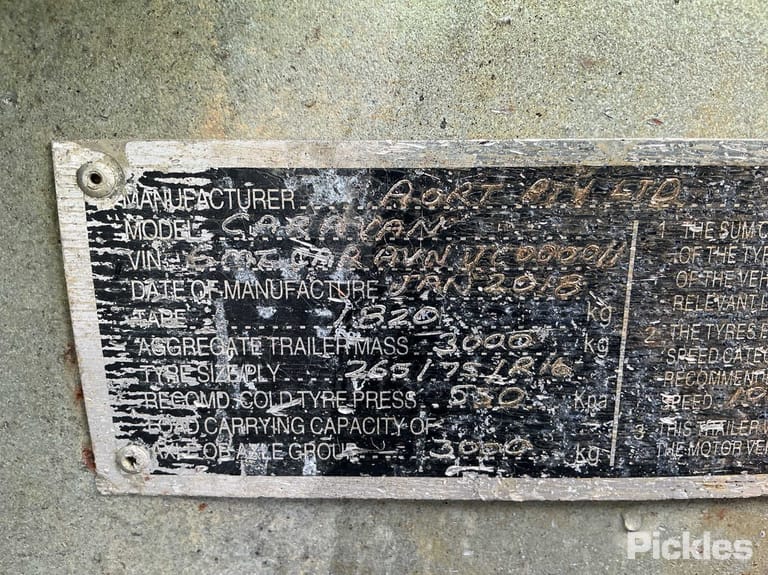 MANUFACTURER AORT PTY LTD
MODEL CARAVAN
VIN
DATE OF MANUFACTURE JAN 2018
TARE 1820 kg
AGGREGATE TRAILER MASS 3000 kg
TYRE SIZE/PLY 265/75/R16
RECOMD. COLD TYRE PRESS 550 Kpa
LOAD CARRYING CAPACITY OF
AXLE OR AXLE GROUP 3000 kg
1 THE SUM O
OF THE TYR
OF THE VEH
RELEVANT L
2 THE TYRES F
SPEED CATEG
RECOMMEND
SPEED 10
3 THIS TRAILER
THE MOTOR VEH
Pickles